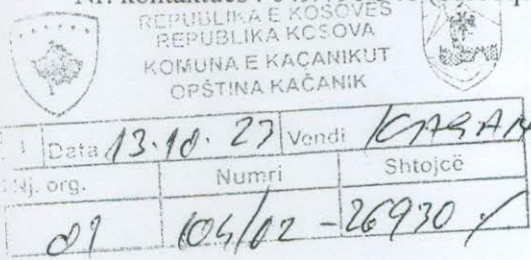 Nr. kontaktues
REPUBLIKA E KOSOVËS
REPUBLIKA KOSOVA
KOMUNA E KAÇANIKUT
OPŠTINA KAČANIK
Data 13.10.23 Vendi
Nj. org. Numri Shtojcë
01 104/02-26930/